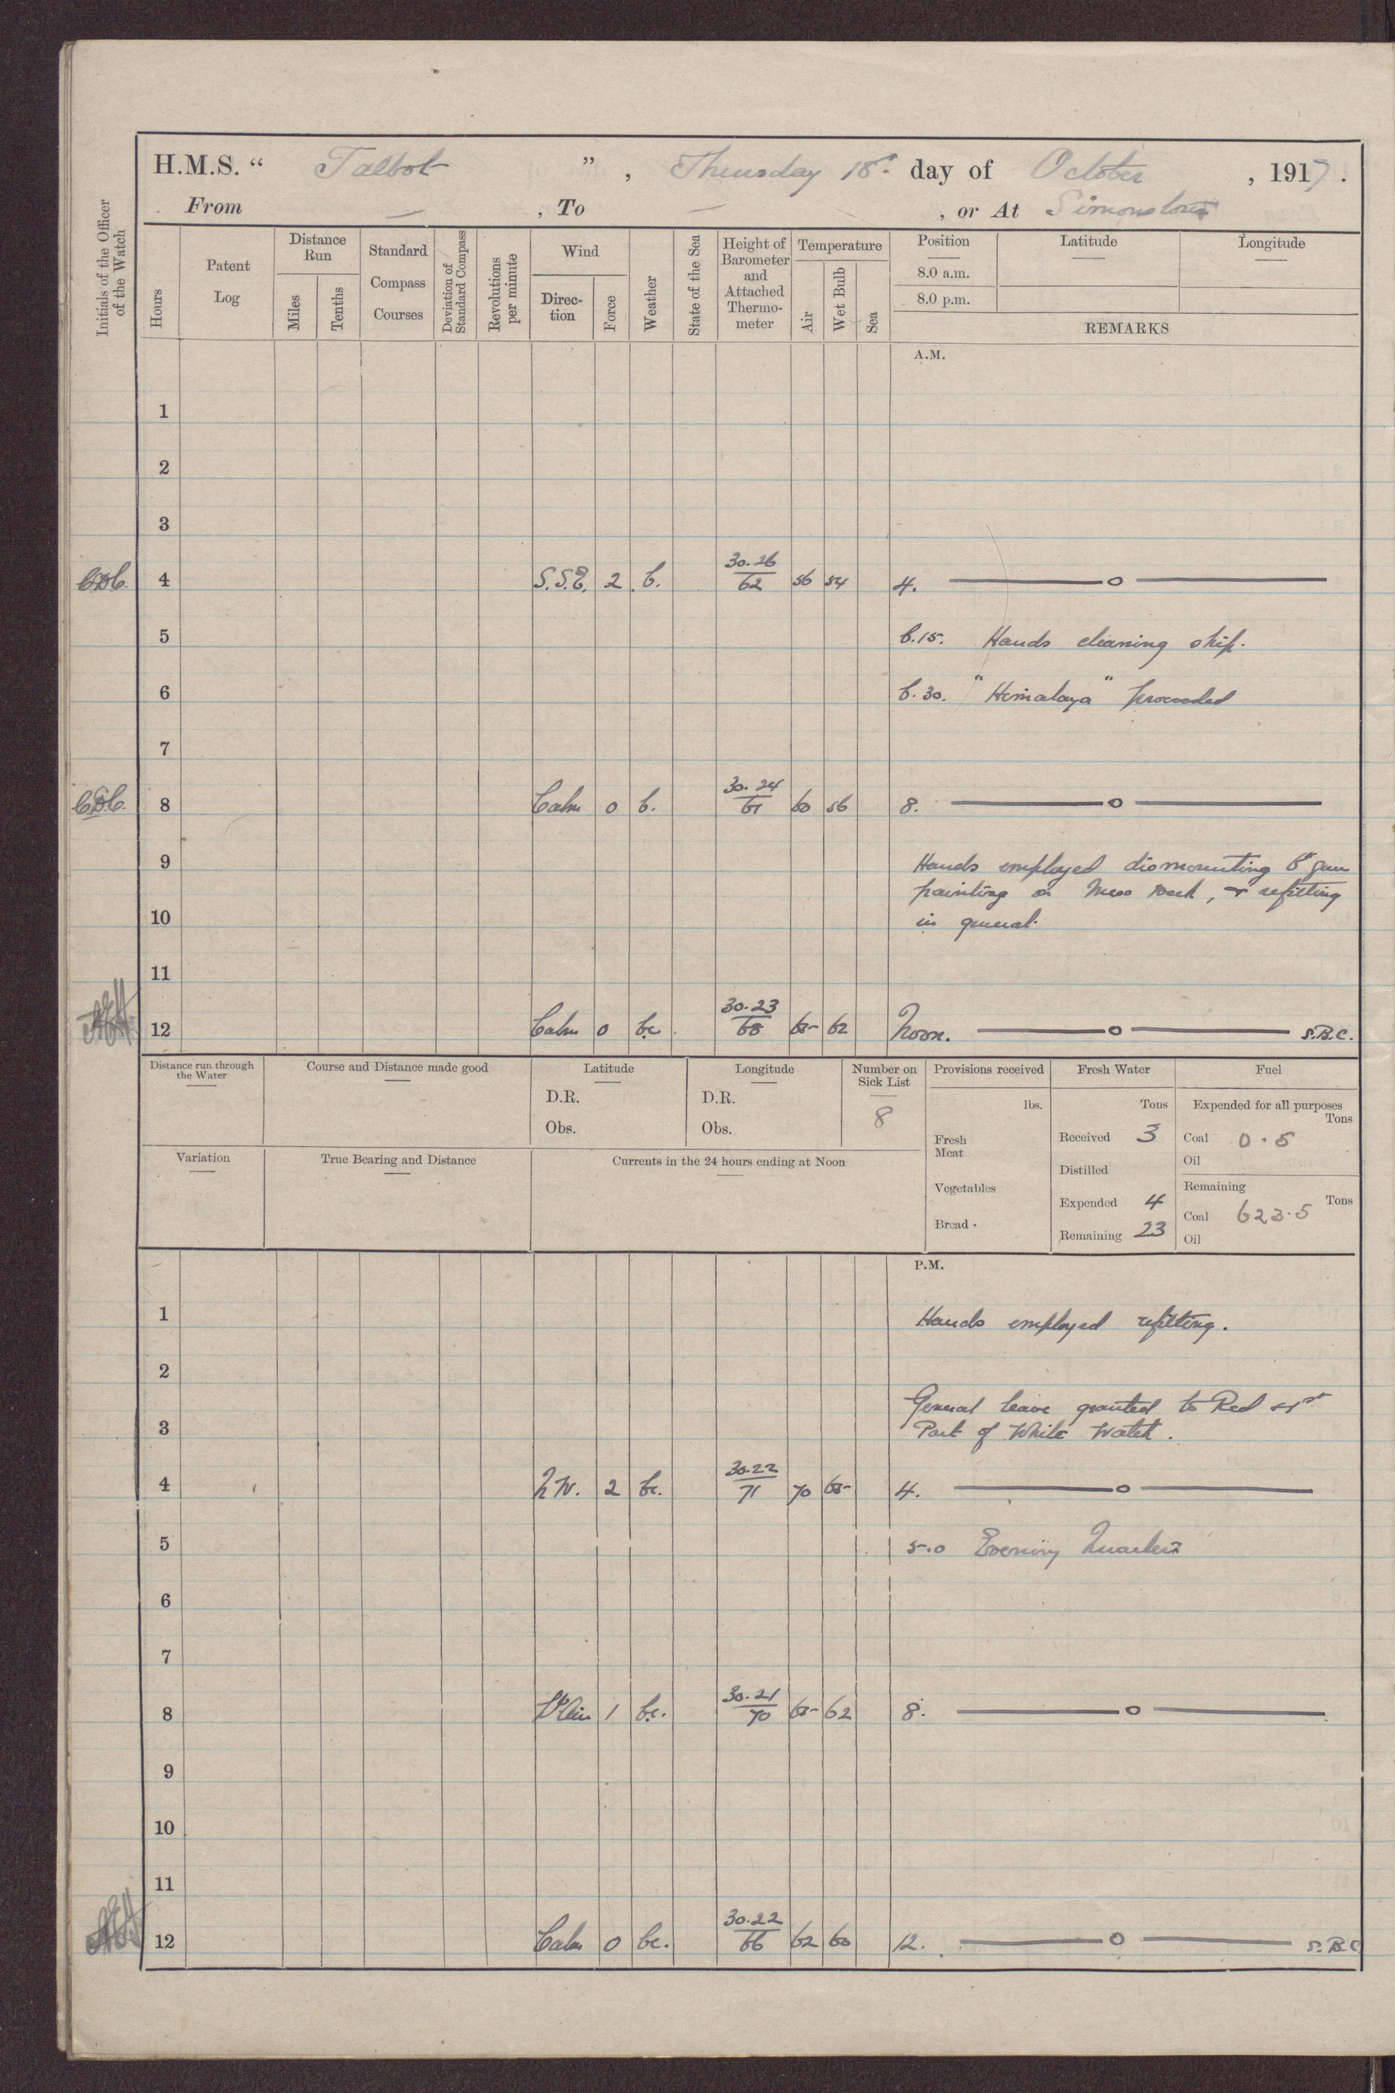 H.M.S. “ Talbot ”, Thursday 18th day of October, 1917.
From — , To — , or At Simonstown
Initials of the Officer of the Watch
Hours
Patent Log
Distance Run
Miles
Tenths
Standard Compass Courses
Deviation of Standard Compass
Revolutions per minute
Wind
Direc-tion
Force
Weather
State of the Sea
Height of Barometer and Attached Thermo-meter
Temperature
Air
Wet Bulb
Sea
Position
8.0 a.m.
8.0 p.m.
Latitude
Longitude
REMARKS
A.M.
1
2
3
4 S.S.E. 2 b. 30.26/62 56 54 4. ——o——
5 6.15. Hands cleaning ship.
6 6.30. "Himalaya" proceeded
7
8 Calm 0 b. 30.24/61 60 56 8. ——o——
9 Hands employed dismounting 6" gun
painting on Mess Deck, & refitting
10 in general.
11
12 Calm 0 bc. 30.23/68 65 62 Noon. ——o—— S.B.C.
Distance run through the Water
Course and Distance made good
Latitude
D.R.
Obs.
Longitude
D.R.
Obs.
Number on Sick List
8
Provisions received
lbs.
Fresh Meat
Vegetables
Bread
Fresh Water
Tons
Received 3
Distilled
Expended 4
Remaining 23
Fuel
Expended for all purposes
Tons
Coal 0.5
Oil
Remaining
Tons
Coal 623.5
Oil
Variation
True Bearing and Distance
Currents in the 24 hours ending at Noon
P.M.
1 Hands employed refitting.
2
General leave granted to Red & 1st
3 Part of White Watch.
4 N.W. 2 bc. 30.22/71 70 65 4. ——o——
5 5.0 Evening Quarters
6
7
8 Vble airs 1 bc. 30.21/70 65 62 8. ——o——
9
10
11
12 Calm 0 bc. 30.22/66 62 60 12. ——o—— S.B.C